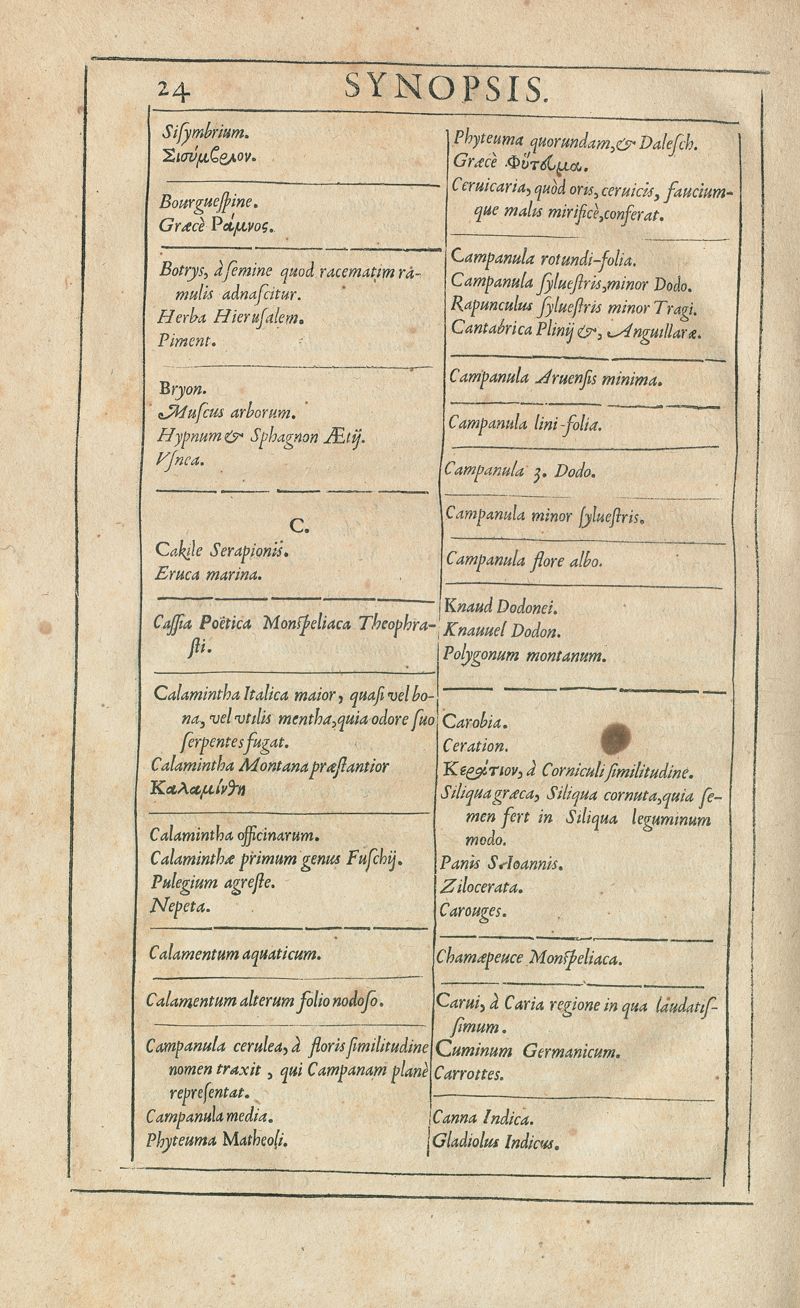 24 SYNOPSIS.
Siſymbrium.
Σισύμβριον.
Bourgueſpine.
Græcè Ράμνος.
Botrys, à ſemine quod racematim ra-
mulis adnaſcitur.
Herba Hieruſalem.
Piment.
Bryon.
Muſcus arborum.
Hypnum & Sphagnon Ætij.
Vſnea.
C.
Cakile Serapionis.
Eruca marina.
Caſſia Poëtica Monſpeliaca Theophra-
ſti.
Calamintha Italica maior, quaſi vel bo-
na, vel vtilis mentha, quia odore ſuo
ſerpentes fugat.
Calamintha Montana præſtantior
Καλαμίνθη
Calamintha officinarum.
Calaminthæ primum genus Fuſchij.
Pulegium agreſte.
Nepeta.
Calamentum aquaticum.
Calamentum alterum folio nodoſo.
Campanula cerulea, à floris ſimilitudine
nomen traxit, qui Campanam planè
repreſentat.
Campanula media.
Phyteuma Matheoli.
Phyteuma quorundam, & Daleſch.
Græcè Φύτευμα.
Ceruicaria, quòd oris, ceruicis, faucium-
que malis mirificè, conferat.
Campanula rotundi-folia.
Campanula ſylueſtris, minor Dodo.
Rapunculus ſylueſtris minor Tragi.
Cantabrica Plinij &, Anguillaræ.
Campanula Aruenſis minima.
Campanula lini-folia.
Campanula 3. Dodo.
Campanula minor ſylueſtris.
Campanula flore albo.
Knaud Dodonei.
Knauuel Dodon.
Polygonum montanum.
Carobia.
Ceration.
Κεράτιον, à Corniculi ſimilitudine.
Siliqua græca, Siliqua cornuta, quia ſe-
men fert in Siliqua leguminum
modo.
Panis S. Ioannis.
Zilocerata.
Carouges.
Chamæpeuce Monſpeliaca.
Carui, à Caria regione in qua laudatiſ-
ſimum.
Cuminum Germanicum.
Carrottes.
Canna Indica.
Gladiolus Indicus.